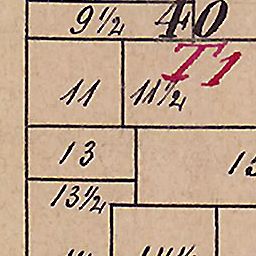 9½ 40
T1
11 11½
13
13½